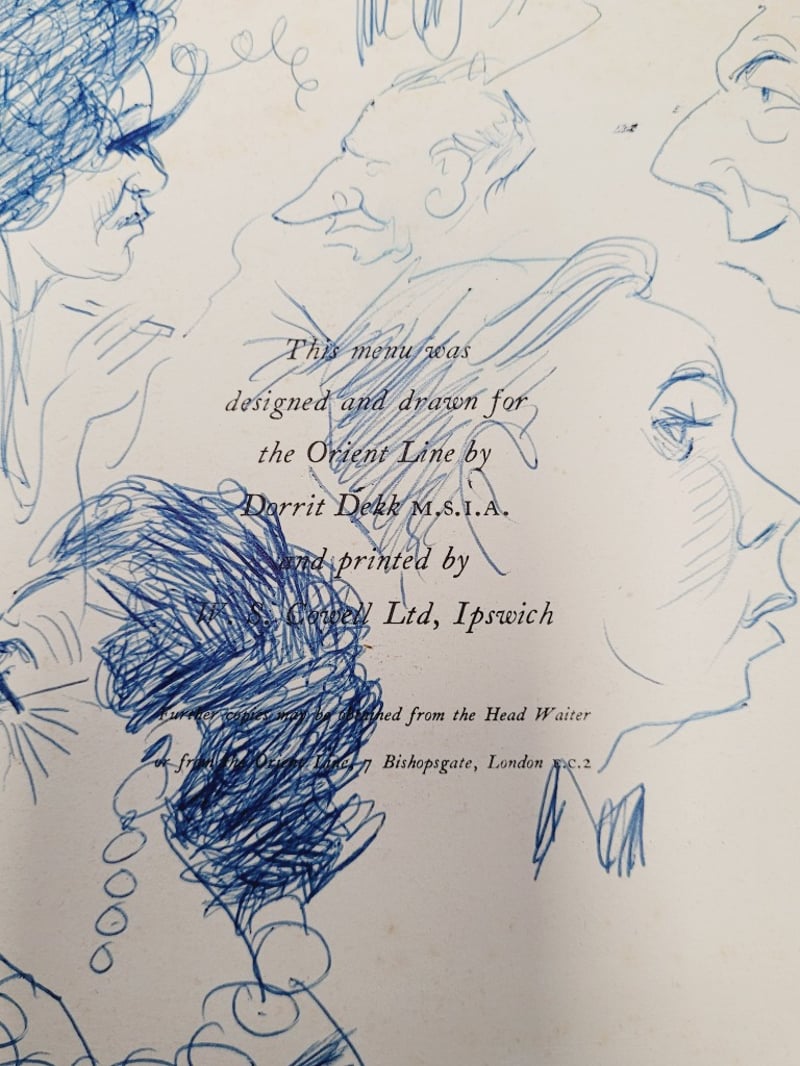 This menu was
designed and drawn for
the Orient Line by
Dorrit Dekk M.S.I.A.
and printed by
W. S. Cowell Ltd, Ipswich
Further copies may be obtained from the Head Waiter
or from the Orient Line, 7 Bishopsgate, London E.C.2